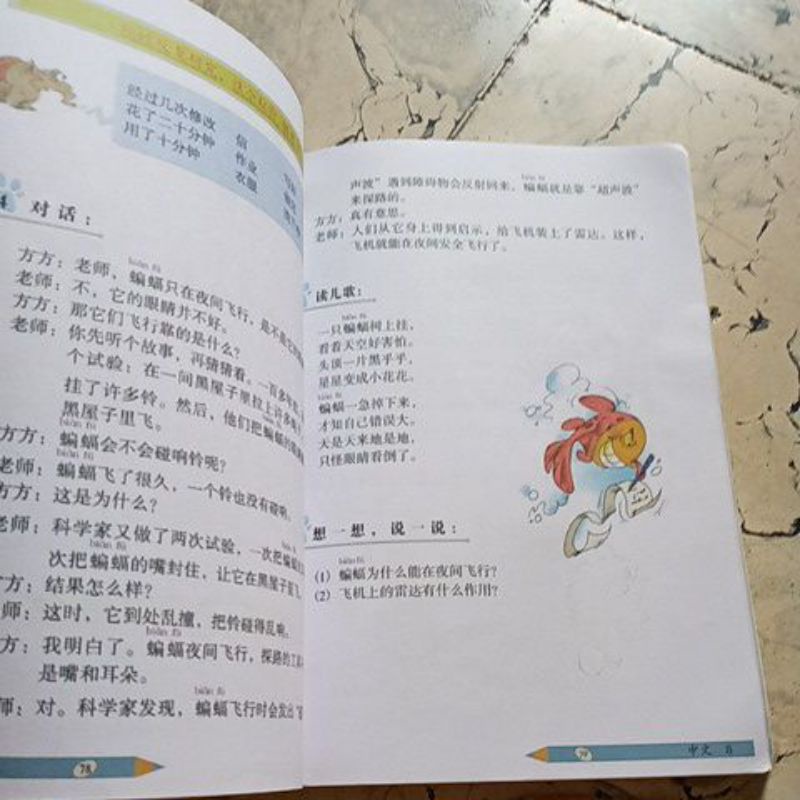 经过几次修改 信
花了二十分钟 作业
用了十分钟 衣服
对话：
biān fú
方方：老师，蝙蝠只在夜间飞行，是不是它的眼
老师：不，它的眼睛并不好。
方方：那它们飞行靠的是什么？
老师：你先听个故事，再猜猜看。一百多年
个试验：在一间黑屋子里拉上许多
biān fú
挂了许多铃。然后，他们把蝙蝠的
黑屋子里飞。
biān fú
方方：蝙蝠会不会碰响铃呢？
biān fú
老师：蝙蝠飞了很久，一个铃也没有碰响。
方方：这是为什么？
biān fú
老师：科学家又做了两次试验，一次把蝙蝠
biān fú
次把蝙蝠的嘴封住，让它在黑屋子里飞
方方：结果怎么样？
老师：这时，它到处乱撞，把铃碰得乱响。
biān fú
方方：我明白了。蝙蝠夜间飞行，探路的工
是嘴和耳朵。
biān fú
老师：对。科学家发现，蝙蝠飞行时会发出“
78
biān fú
声波”遇到障碍物会反射回来，蝙蝠就是靠“超声波”
来探路的。
方方：真有意思。
老师：人们从它身上得到启示，给飞机装上了雷达。这样，
飞机就能在夜间安全飞行了。
读儿歌：
biān fú
一只蝙蝠树上挂，
看看天空好害怕。
头顶一片黑乎乎，
星星变成小花花。
biān fú
蝙蝠一急掉下来，
才知自己错误大。
天是天来地是地，
只怪眼睛看倒了。
想一想，说一说：
biān fú
(1) 蝙蝠为什么能在夜间飞行？
(2) 飞机上的雷达有什么作用？
79
中文 8